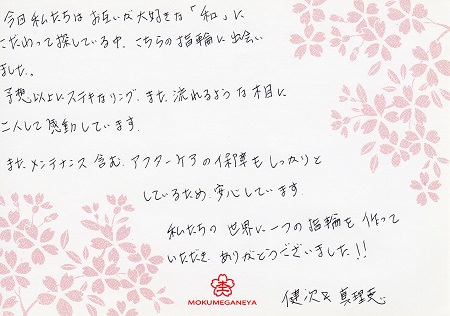 今日私たちはお互いが大好きな「和」に
こだわって探している中、こちらの指輪に出会い
ました。
予想以上にステキなリング、また、流れるような木目に
二人して感動しています。
また、メンテナンス含む、アフターケアの保障もしっかりと
しているため、安心しています。
私たちの世界に一つの指輪を作って
いただき、ありがとうございました!!
MOKUMEGANEYA
健次 & 真理恵